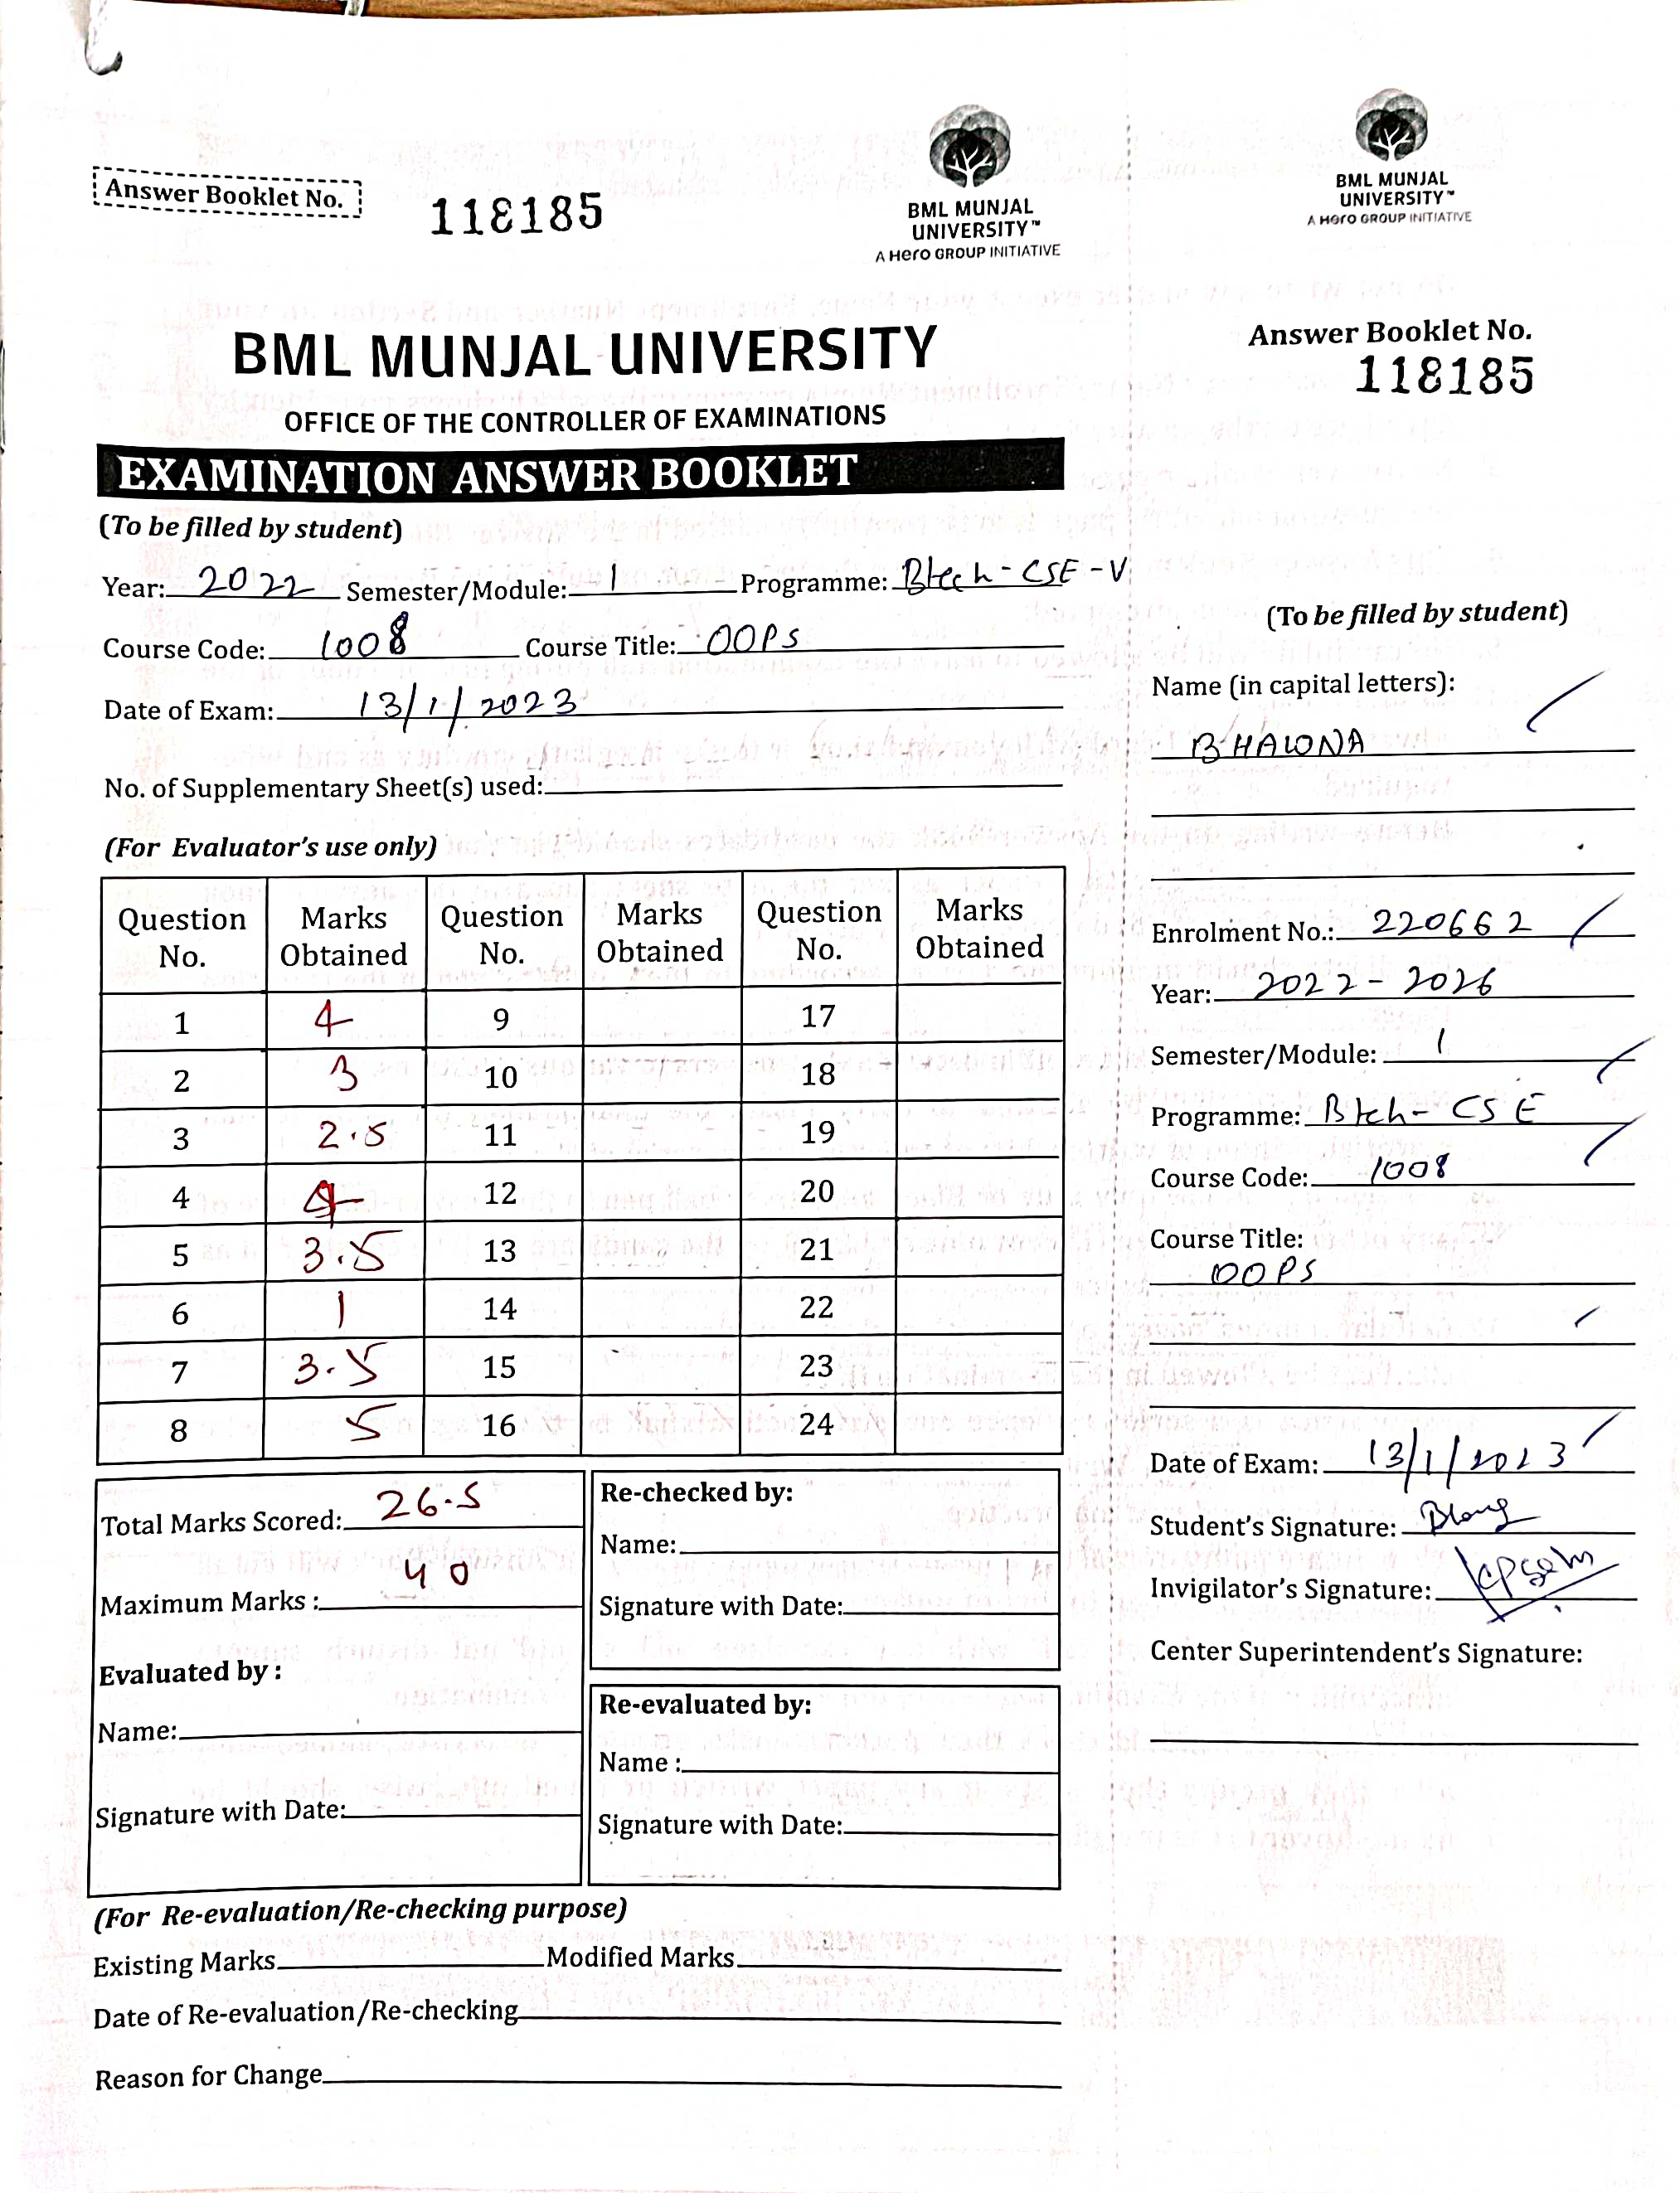 Answer Booklet No.
118185
BML MUNJAL
UNIVERSITY™
A Hero GROUP INITIATIVE
BML MUNJAL UNIVERSITY
OFFICE OF THE CONTROLLER OF EXAMINATIONS
EXAMINATION ANSWER BOOKLET
(To be filled by student)
Year: 2022 Semester/Module: 1 Programme: Btech-CSE-V
Course Code: 1008 Course Title: OOPS
Date of Exam: 13/1/2023
No. of Supplementary Sheet(s) used:
(For Evaluator's use only)
Question No. Marks Obtained Question No. Marks Obtained Question No. Marks Obtained
1 4 9 17
2 3 10 18
3 2.5 11 19
4 4 12 20
5 3.5 13 21
6 1 14 22
7 3.5 15 23
8 5 16 24
Total Marks Scored: 26.5
Maximum Marks : 40
Evaluated by :
Name:
Signature with Date:
Re-checked by:
Name:
Signature with Date:
Re-evaluated by:
Name :
Signature with Date:
(For Re-evaluation/Re-checking purpose)
Existing Marks Modified Marks
Date of Re-evaluation/Re-checking
Reason for Change
BML MUNJAL
UNIVERSITY™
A Hero GROUP INITIATIVE
Answer Booklet No.
118185
(To be filled by student)
Name (in capital letters):
BHAWNA
Enrolment No.: 220662
Year: 2022-2026
Semester/Module: 1
Programme: Btch-CSE
Course Code: 1008
Course Title:
OOPS
Date of Exam: 13/1/2023
Student's Signature:
Invigilator's Signature:
Center Superintendent's Signature: